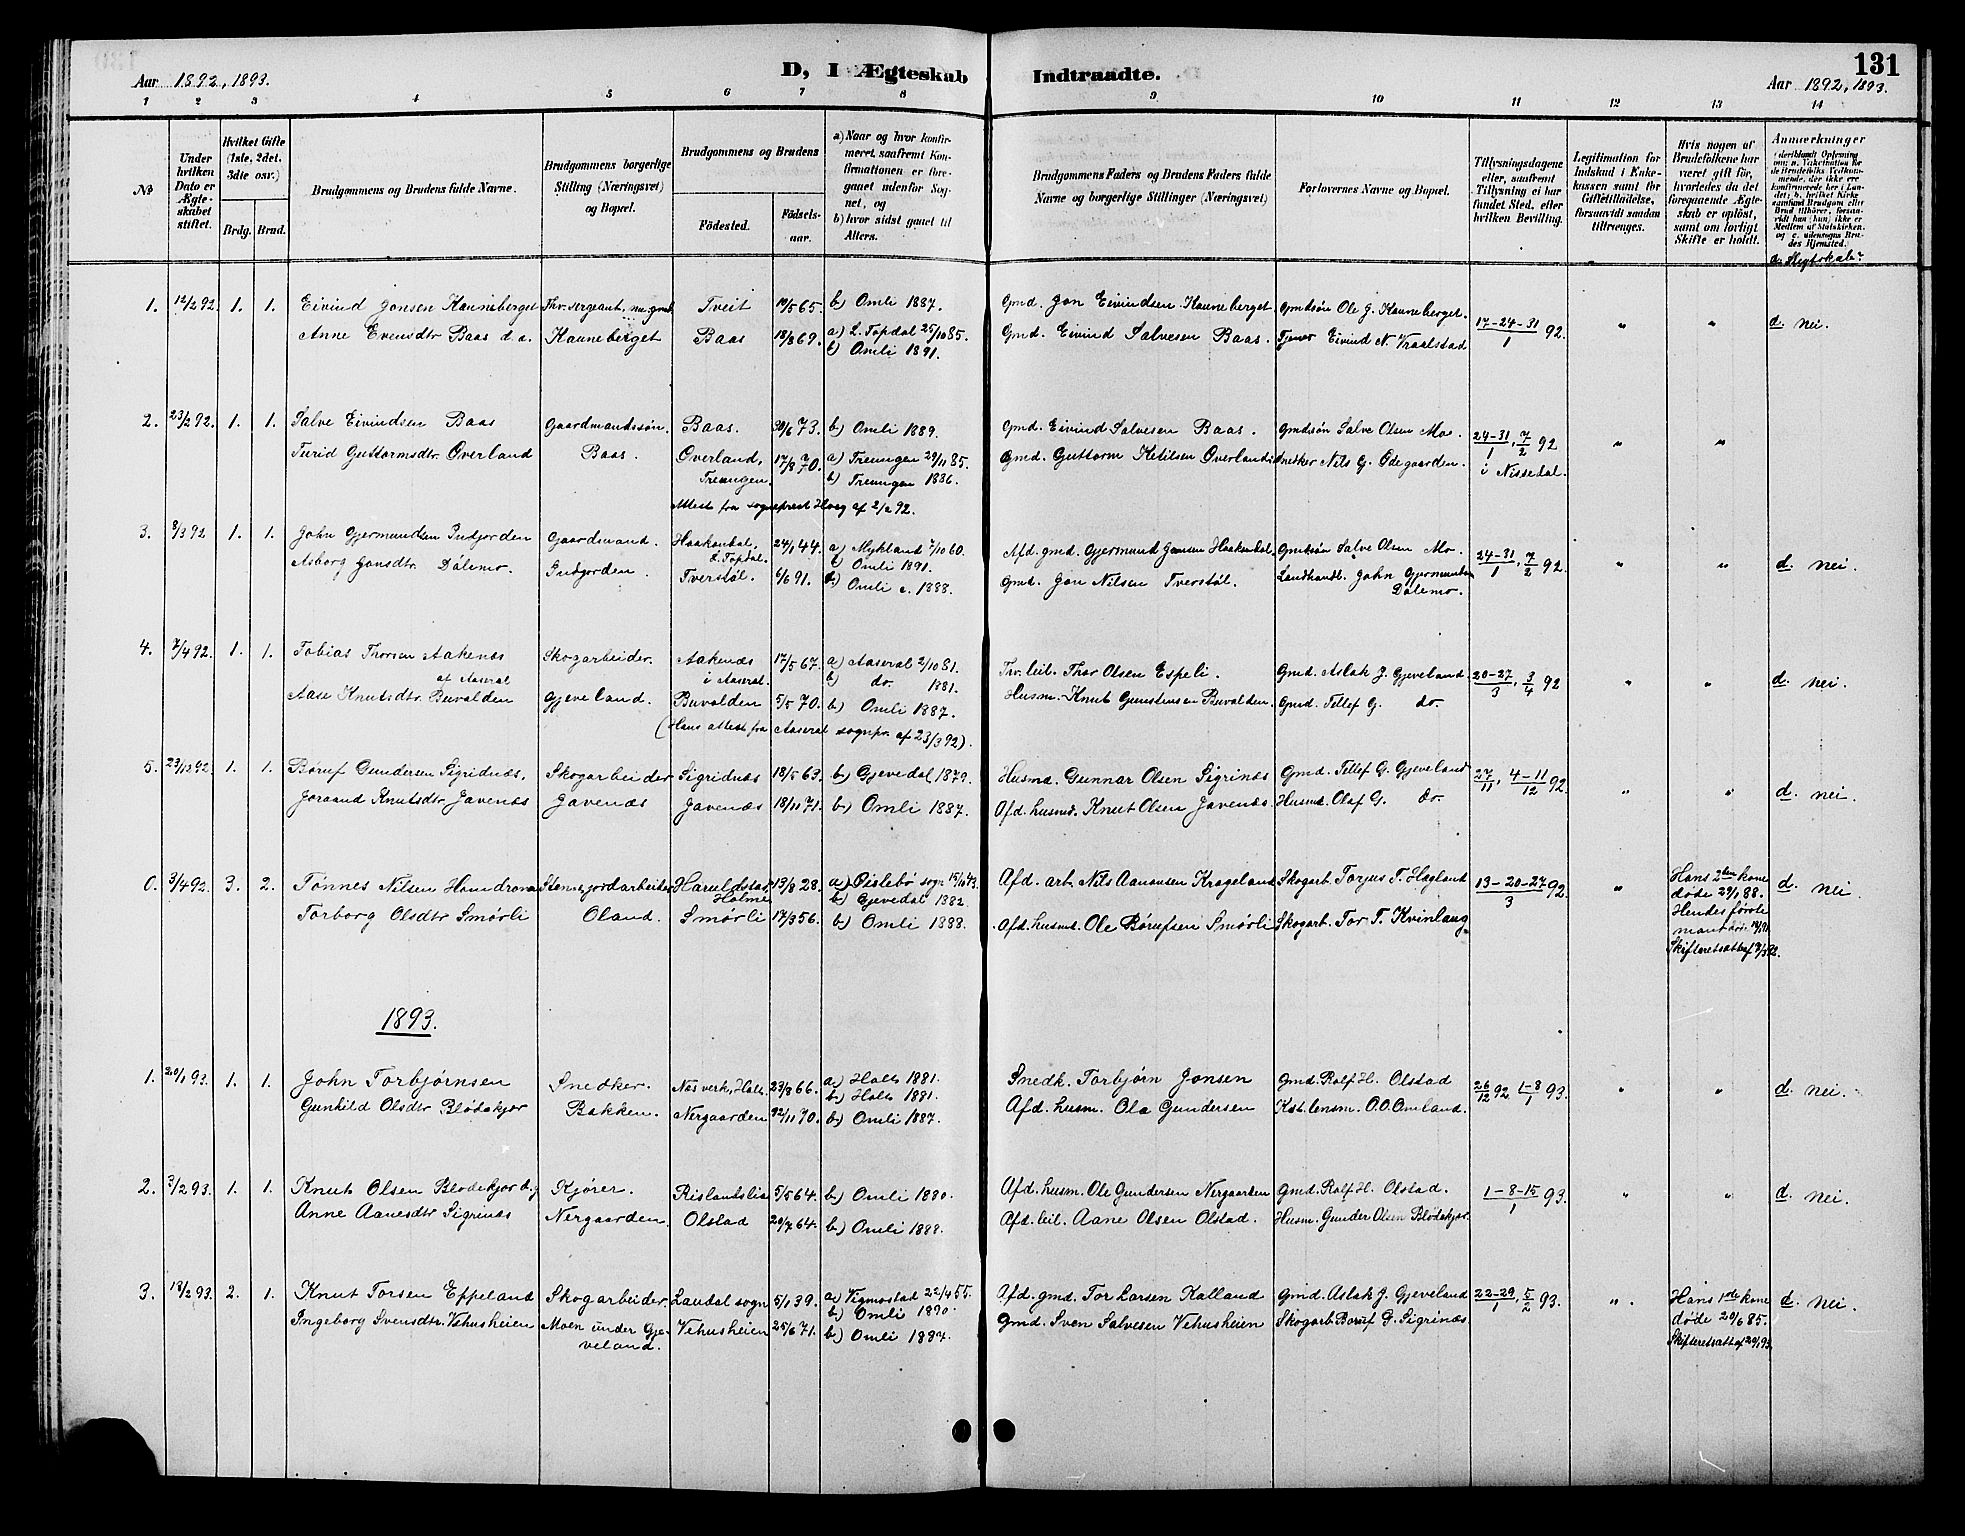 131
D, I Ægteskab Indtraadte.
Aar 1892, 1893.
Aar 1892, 1893.
1 2 3 4 5 6 7 8 9 10 11 12 13 14
No
Under hvilken Dato er Ægteskabet stiftet.
Hvilket Gifte (1ste, 2det, 3dte osv.)
Brdg. Brud.
Brudgommens og Brudens fulde Navne.
Brudgommens borgerlige Stilling (Næringsvei) og Bopæl.
Brudgommens og Brudens
Födested.
Födselsaar.
a) Naar og hvor konfirmeret, saafremt Konfirmationen er foregaaet udenfor Sognet, og
b) hvor sidst gaaet til Alters.
Brudgommens Faders og Brudens Faders fulde Navne og borgerlige Stillinger (Næringsvei)
Forlovernes Navne og Bopæl.
Tillysningsdagene eller, saafremt Tillysning ei har fundet Sted, efter hvilken Bevilling.
Legitimation for Indskud i Enkekassen samt for Giftetilladelse, forsaavidt saadan tiltrænges.
Hvis nogen af Brudefolkene har været gift för, hvorledes da det foregaaende Ægteskab er oplöst, samt om lovligt Skifte er holdt.
Anmærkninger
d. Slegtskab?
1. 12/2 92. 1. 1. Eivind Jonsen Kauneberget Fhv. sergeant, nu gmd. Tveit 10/5 65. b) Omli 1887. Gmd. Jon Eivindsen Kauneberget Gmdsön Ole J. Kauneberget. 17-24-31/1 92. " " d. nei.
Anne Evendtr Baas d.a. Kauneberget Baas 18/8 69. a) L. Topdal 25/10 85. Gmd. Eivind Salvesen Baas. Tjener Eivind N. Vraalstad
b) Omli 1891.
2. 23/2 92. 1. 1. Salve Eivindsen Baas Gaardmandssön. Baas. 30/6 73. b) Omli 1889. Gmd. Eivind Salvesen Baas. Gmdsön Salve Olsen Mo. 24-31/1, 7/2 92 " "
Turid Guttormsdtr Överland Baas. Överland, 17/8 70. a) Treungen 29/11 85. Gmd. Guttorm Ketilsen Överland. Snedker Nils G. Ödegaarden. i Nissedal.
Treungen. b) Treungen 1886.
Attest fra sogneprest Hvog af 2/2 92.
3. 8/3 92 1. 1. John Gjermundsen Indjorden Gaardmand. Haakondal, 24/1 44. a) Mykland 7/10 60. Afd. gmd. Gjermund Jonsen Haakondal. Gmdssön Salve Olsen Mo. 24-31/1, 7/2 92. " " d. nei.
L. Topdal. b) Omli 1891.
Asborg Jonsdtr Dålemo. Indjorden. Tverstöl. 6/6 91. b) Omli c. 1888. Gmd. Jon Nilsen Tverstöl. Landhandl. John Gjermundsen
Dålemo.
4. 7/4 92. 1. 1. Tobias Thorsen Aakenes Skogarbeider. Aakenæs 17/5 67. a) Aaseral 2/10 81. Fv. leil. Thor Olsen Espeli. Gmd. Aslak J. Gjeveland. 20-27/3, 3/4 92 " " d. nei.
af Aaseral i Aaseral. b) do. 1881.
Aase Knutsdtr Buvalden Gjeveland. Buvalden 5/5 70. b) Omli 1887. Husm. Knut Gunstensen Buvalden. Gmd. Tellef G. do.
(Hans attest fra Aaseral sognpr. af 23/3 92).
5. 23/12 92. 1. 1. Böruf Gundersen Sigridnæs, Skogarbeider Sigridnæs 18/5 63. b) Gjevedal 1879. Husmd. Gunnar Olsen Sigrinæs Gmd. Tellef G. Gjeveland 27/11, 4-11/12 92. " " d. nei.
Joraand Knutsdtr Javenæs Javenæs Javenæs 18/11 71. b) Omli 1887. Afd. husmd. Knut Olsen Javenæs. Husmd. Olaf G. do.
0. 3/4 92. 3. 2. Tönnes Nilsen Homdrom Stensgjordarbeider Haruldstad, 13/8 28. a) Öislebö sogn 15/10 43. Afd. arb. Nils Aanonsen Krageland Skogarb. Torjus T. Hagland 13-20-27/3 92. " Hans 2den kone d. nei
Holme b) Gjevedal 1882. döde 29/1 88.
Torborg Olsdtr Smörli Öland. Smörli 17/3 56. b) Omli 1888. Afd. husmd. Ole Börufsen Smörli Skogarb. Tor T. Kvinlaug. Hendes förste
Skifteretsatt. af
1893.
1. 20/1 93. 1. 1. John Torbjörnsen Snedker. Næs verk, Holt. 23/8 66. a) Holt 1881. Snedk. Torbjörn Jonsen Gmd. Rolf H. Olstad 26/12 92, 1-8/1 93. " " d. nei.
b) Holt 1881.
Gunhild Olsdtr Blödekjær Bakken. Nergaarden 22/11 70. b) Omli 1887. Afd. husm. Ola Gundersen Kst. lensm. O.O. Omland.
2. 3/2 93. 1. 1. Knut Olsen Blödekjær Kjörer. Rislandslia 5/5 64. b) Omli 1880. Afd. husm. Ole Gundersen Nergaarden Gmd. Rolf H. Olstad. 1-8-15/1 93. " " d. nei.
Anne Aanesdtr Sigrinæs Nergaarden. Olstad 20/7 64. b) Omli 1888. Afd. leil. Aane Olsen Olstad. Husm. Gunder Olsen Blödekjær.
3. 18/2 93. 2. 1. Knut Torsen Eppeland Skogarbeider. Laudal sogn 5/1 39. a) Vigmostad 22/4 55. Afd. gmd. Tor Larsen Kalland Gmd. Aslak J. Gjeveland 22-29/1, 5/2 93. ". Hans 1ste kone d. nei.
b) Omli 1890. döde 20/6 85.
Ingeborg Svensdtr. Vehusheien Moen under Gjeveland. Vehusheien 25/6 71. b) Omli 1884. Gmd. Sven Salvesen Vehusheien Skogarb. Boruf G. Sigrinæs Skifteretsatt. af 20/1 93.